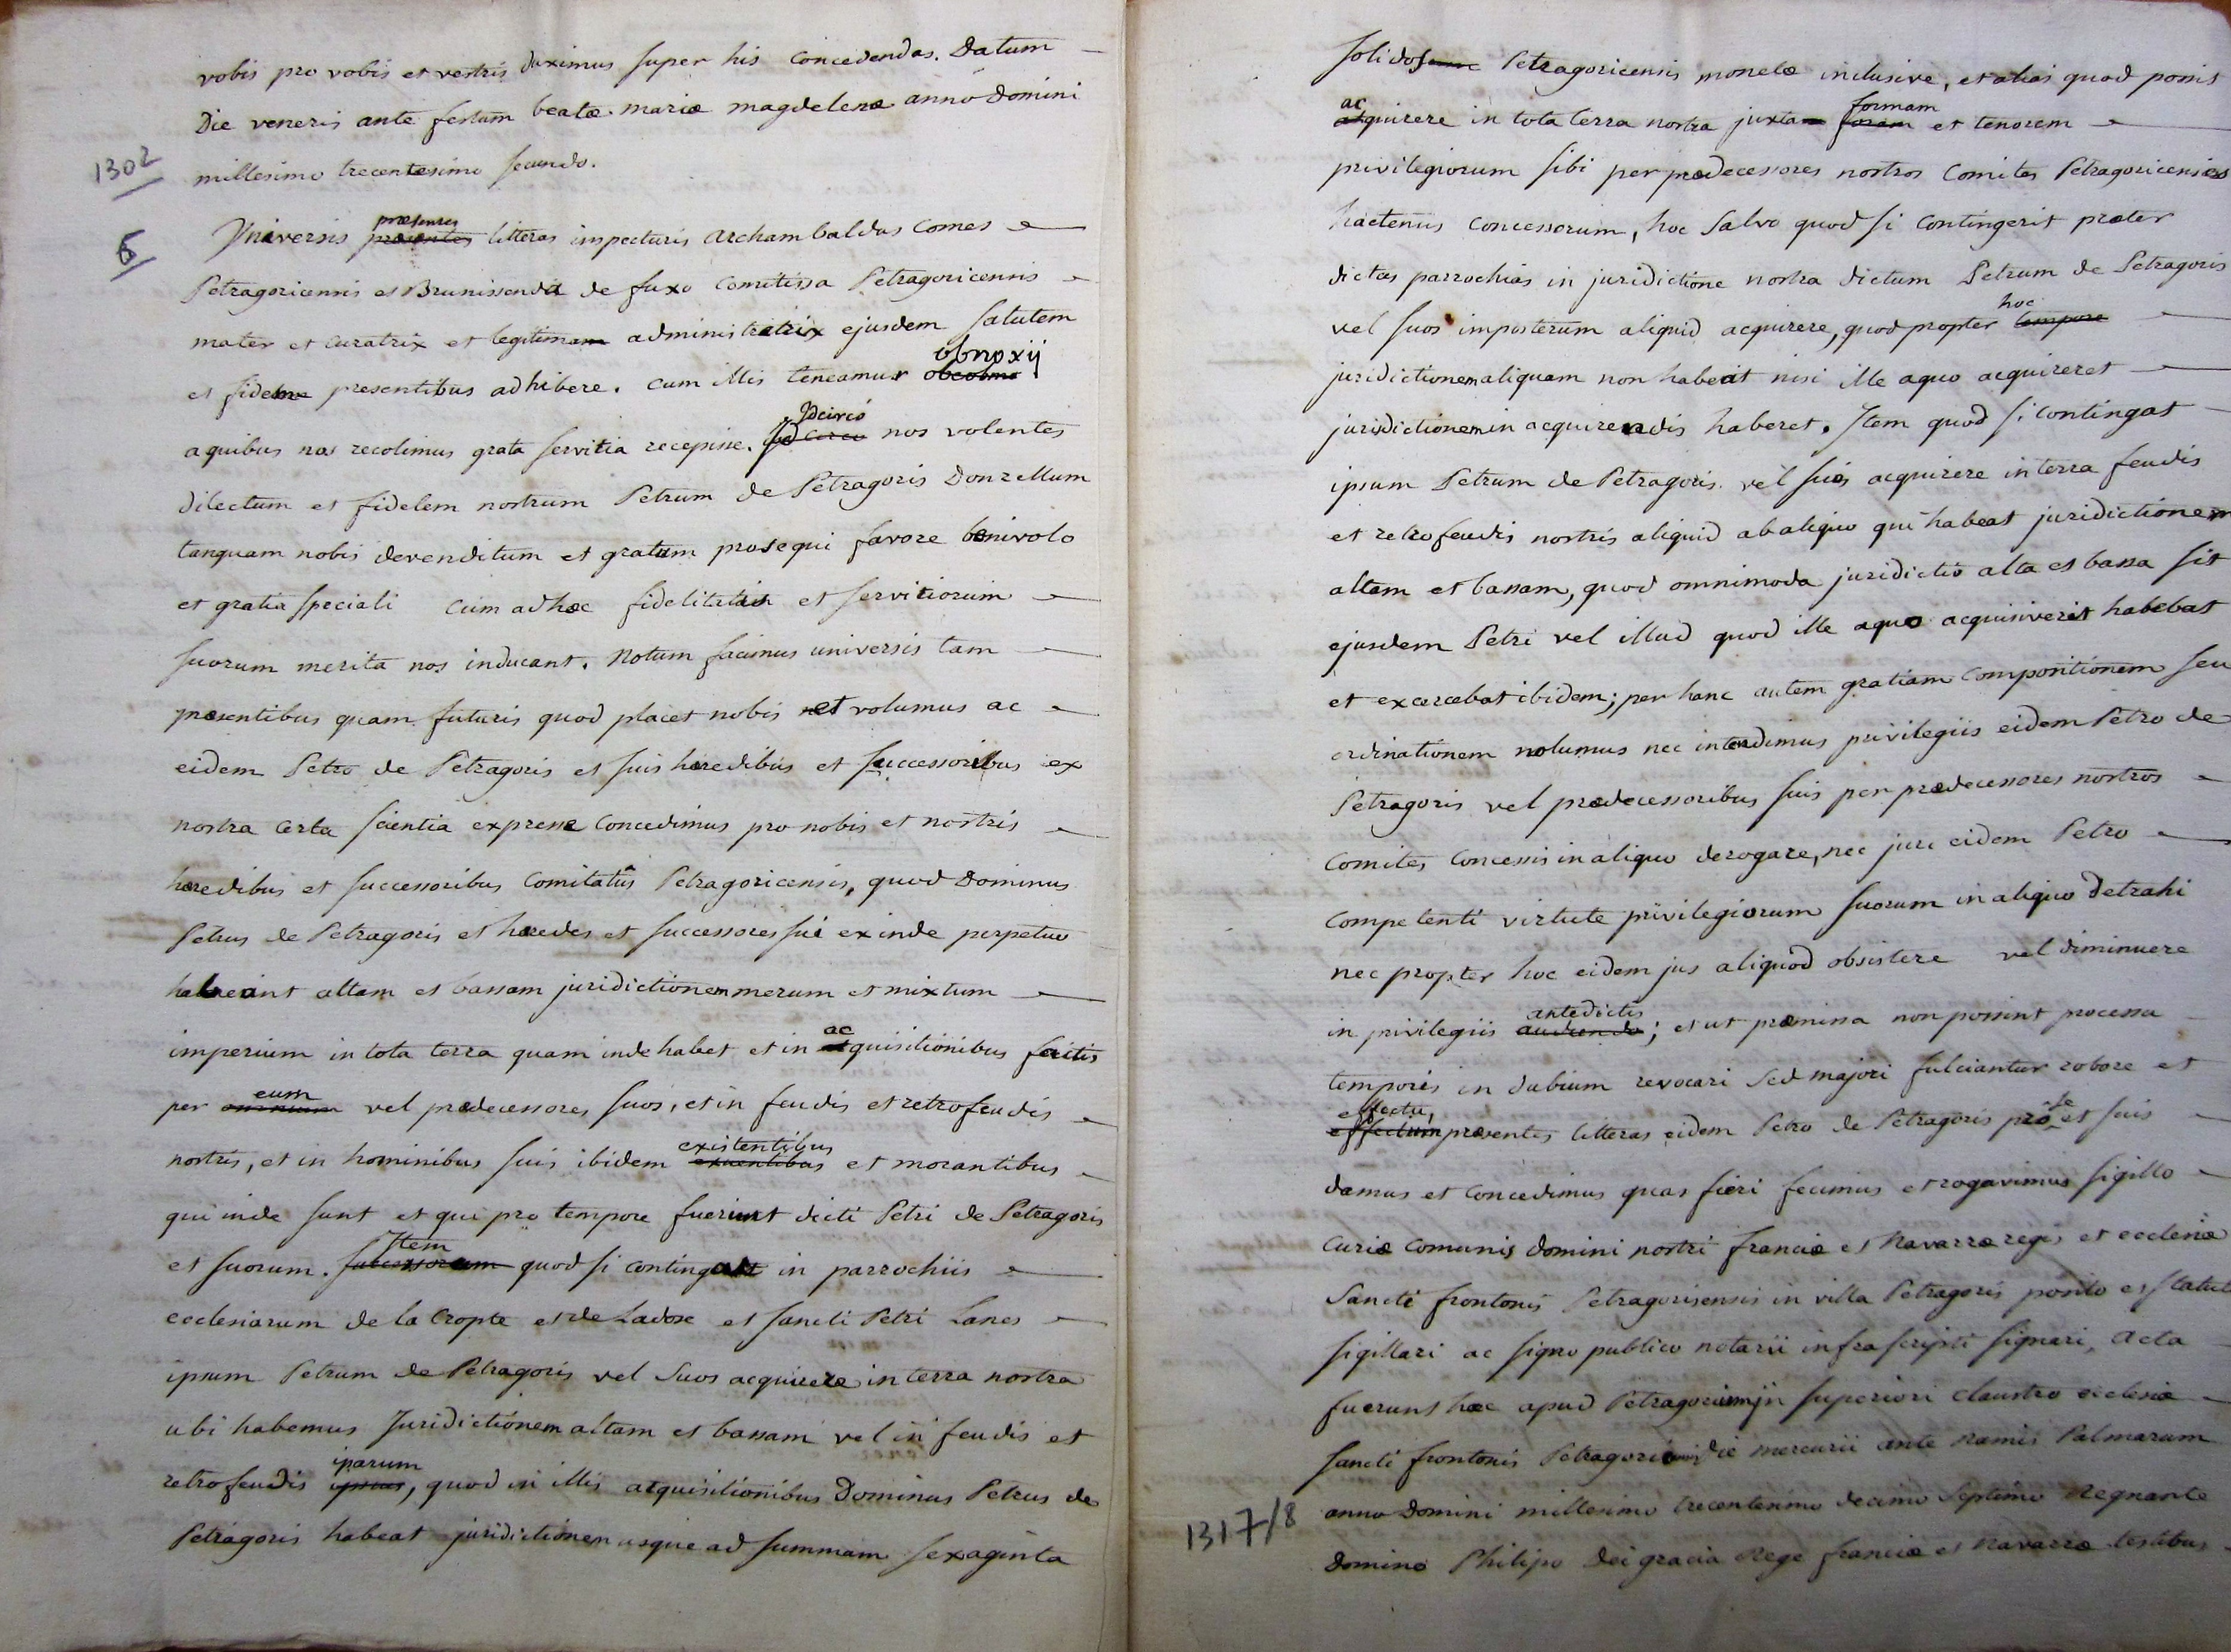 vobis pro vobis et vestris duximus super his concedendas. Datum
Die veneris ante festum beatæ mariæ magdelenæ anno Domini
1302
millesimo trecentesimo secundo.
6
præsentes
Universis præsentes litteras inspecturis archambaldus comes
Petragoricensis et Brunissenda de fuxo comitissa Petragoricensis
mater et curatrix et legitimam administratrix ejusdem salutem
et fidem presentibus adhibere. cum illis teneamur obnoxij
a quibus nos recolimus grata servitia recepisse. Idcircò nos volentes
dilectum et fidelem nostrum Petrum de Petragoris Donzellum
tanquam nobis devenditum et gratum prosequi favore benivolo
et gratia speciali cum ad hæc fidelitatis et servitiorum
suorum merita nos inducant. Notum facimus universis tam
præsentibus quam futuris quod placet nobis et volumus ac
eidem Petro de Petragoris et suis hæredibus et successoribus ex
nostra certa scientia expresse concedimus pro nobis et nostris
hæredibus et successoribus comitatûs Petragoricensis, quod Dominus
Petrus de Petragoris et hæredes et successores sui exinde perpetuo
habeant altam et bassam juridictionem merum et mixtum
ac
imperium in tota terra quam inde habet et in acquisitionibus factis
eum
per vel prædecessores suos, et in feudis et retrofeudis
existentibus
nostris, et in hominibus suis ibidem et morantibus
qui inde sunt et qui pro tempore fuerint dicti Petri de Petragoris
Item
et suorum. successorum quod si contingat in parrochiis
ecclesiarum de la Cropte et de Ladose et sancti Petri Lanes
ipsum Petrum de Petragoris vel suos acquirere in terra nostra
ubi habemus Juridictionem altam et bassam vel in feudis et
iparum
retrofeudis ipsius, quod in illis acquisitionibus Dominus Petrus de
Petragoris habeat juridictionem usque ad summam sexaginta
solidos Petragoricensis monetæ inclusive, et alias quod possit
ac formam
acquirere in tota terra nostra juxta foram et tenorem
privilegiorum sibi per prædecessores nostros comites Petragoricenses
hactenus concessorum, hoc salvo quod si contingerit præter
dictas parrochias in juridictione nostra dictum Petrum de Petragoris
hoc
vel suos imposterum aliquid acquirere, quod propter tempore
juridictionem aliquam non habeat nisi ille a quo acquireret
jurisdictionem in acquirendis haberet. Item quod si contingat
ipsum Petrum de Petragoris vel suos acquirere in terra feudis
et retrofeudis nostris aliquid ab aliquo qui habeat juridictionem
altam et bassam, quod omnimoda juridictio alta et bassa sit
ejusdem Petri vel illud quod ille a quo acquisiverit habebat
et excercebat ibidem; per hanc autem gratiam compositionem seu
ordinationem nolumus nec intendimus privilegiis eidem Petro de
Petragoris vel prædecessoribus suis per prædecessores nostros
comites concessis in aliquo derogare, nec jure eidem Petro
competenti virtute privilegiorum suorum in aliquo detrahi
nec propter hoc eidem jus aliquod obsistere vel diminuere
antedictis
in privilegiis audiendo; et ut præmissa non possint processu
temporis in dubium revocari sed majori fulciantur robore et
effectu, se
effectum præsentes litteras eidem Petro de Petragoris pro et suis
damus et concedimus quas fieri fecimus et rogavimus sigillo
curiæ comunis domini nostri franciæ et Navarræ regis et ecclesiæ
Sancti frontonis Petragorisensis in villa Petragoris posito et statut
sigillari ac signo publico notarii infrascripti signari, acta
fuerunt hæc apud Petragorium in superiori claustro ecclesiæ
sancti frontonis Petragori die mercurii ante ramis Palmarum
1317/8
anno Domini millesimo trecentesimo decimo septimo Regnante
domino Philipo dei gracia Rege franciæ et Navarræ testibus